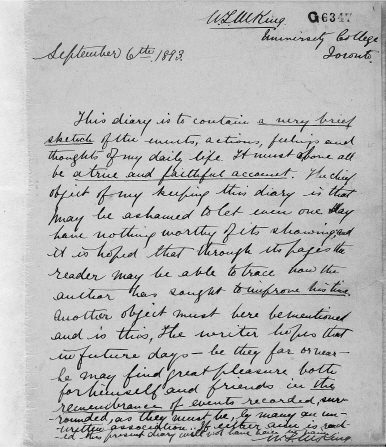 W L M King.
G6347
University College
Toronto.
September 6th 1893.
This diary is to contain a very brief
sketch of the events, actions, feelings and
thoughts of my daily life. It must above all
be a true and faithful account. The chief
object of my keeping this diary is that
may be ashamed to let even one day
have nothing worthy of its showing, and
it is hoped that through its pages the
reader may be able to trace how the
author has sought to improve his time.
Another object must here be mentioned
and is this, the writer hopes that
in future days - be they far or near -
he may find great pleasure both
for himself and friends in the
remembrance of events recorded, surr-
ounded, as they must be, by many an un-
written association. If either aim is reach-
ed this present diary will not have been in vain.
W L M King